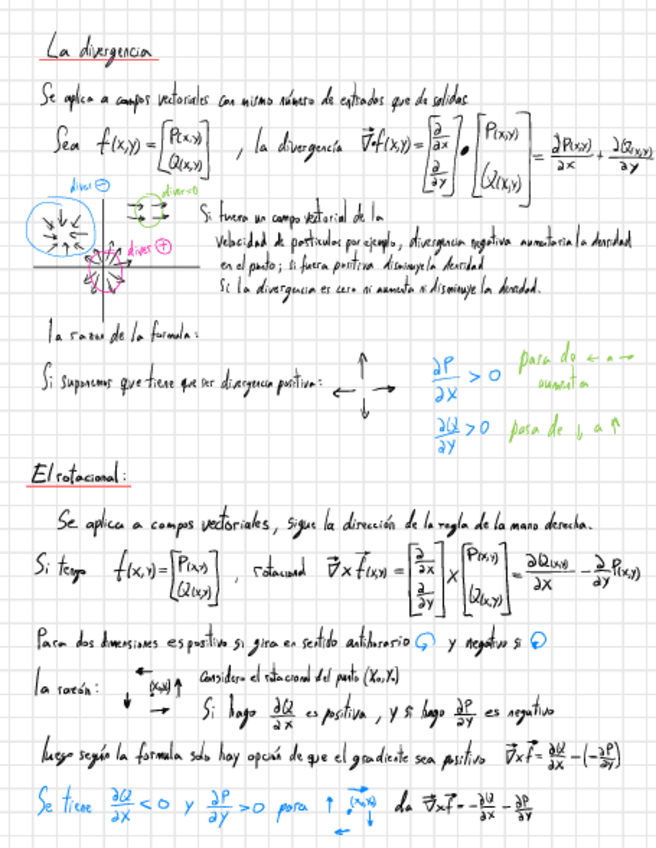 La divergencia
Se aplica a campos vectoriales con mismo número de entradas que de salidas.
Sea f(x,y) = [P(x,y) Q(x,y)], la divergencia ∇⃗·f(x,y) = [∂/∂x ∂/∂y] • [P(x,y) Q(x,y)] = ∂P(x,y)/∂x + ∂Q(x,y)/∂y
diver ⊖
diver=0
diver ⊕
Si fuera un campo vectorial de la
velocidad de partículas por ejemplo, divergencia negativa aumentaria la densidad
en el punto; si fuera positiva disminuye la densidad
Si la divergencia es cero ni aumenta ni disminuye la densidad.
la razon de la formula:
Si suponemos que tiene que ser divergencia positiva:
∂P/∂x > 0 pasa de ← a →
aumenta
∂Q/∂y > 0 pasa de ↓ a ↑
El rotacional:
Se aplica a campos vectoriales, sigue la dirección de la regla de la mano derecha.
Si tengo f(x,y) = [P(x,y) Q(x,y)], rotacional ∇⃗ x f⃗(x,y) = [∂/∂x ∂/∂y] x [P(x,y) Q(x,y)] = ∂Q(x,y)/∂x - ∂/∂y P(x,y)
Para dos dimensiones es positivo si gira en sentido antihorario ↺ y negativo si ↻
la razón: ← ↓ (x₀,y₀) ↑ → Considero el rotacional del punto (X₀,Y₀)
Si hago ∂Q/∂x es positiva, y si hago ∂P/∂y es negativo
luego según la formula solo hay opción de que el gradiente sea positivo ∇⃗xf⃗ = ∂Q/∂x - (-∂P/∂y)
Se tiene ∂Q/∂x < 0 y ∂P/∂y > 0 para ↑ → (x₀,y₀) ↓ ← da ∇⃗xf⃗ = -∂Q/∂x - ∂P/∂y